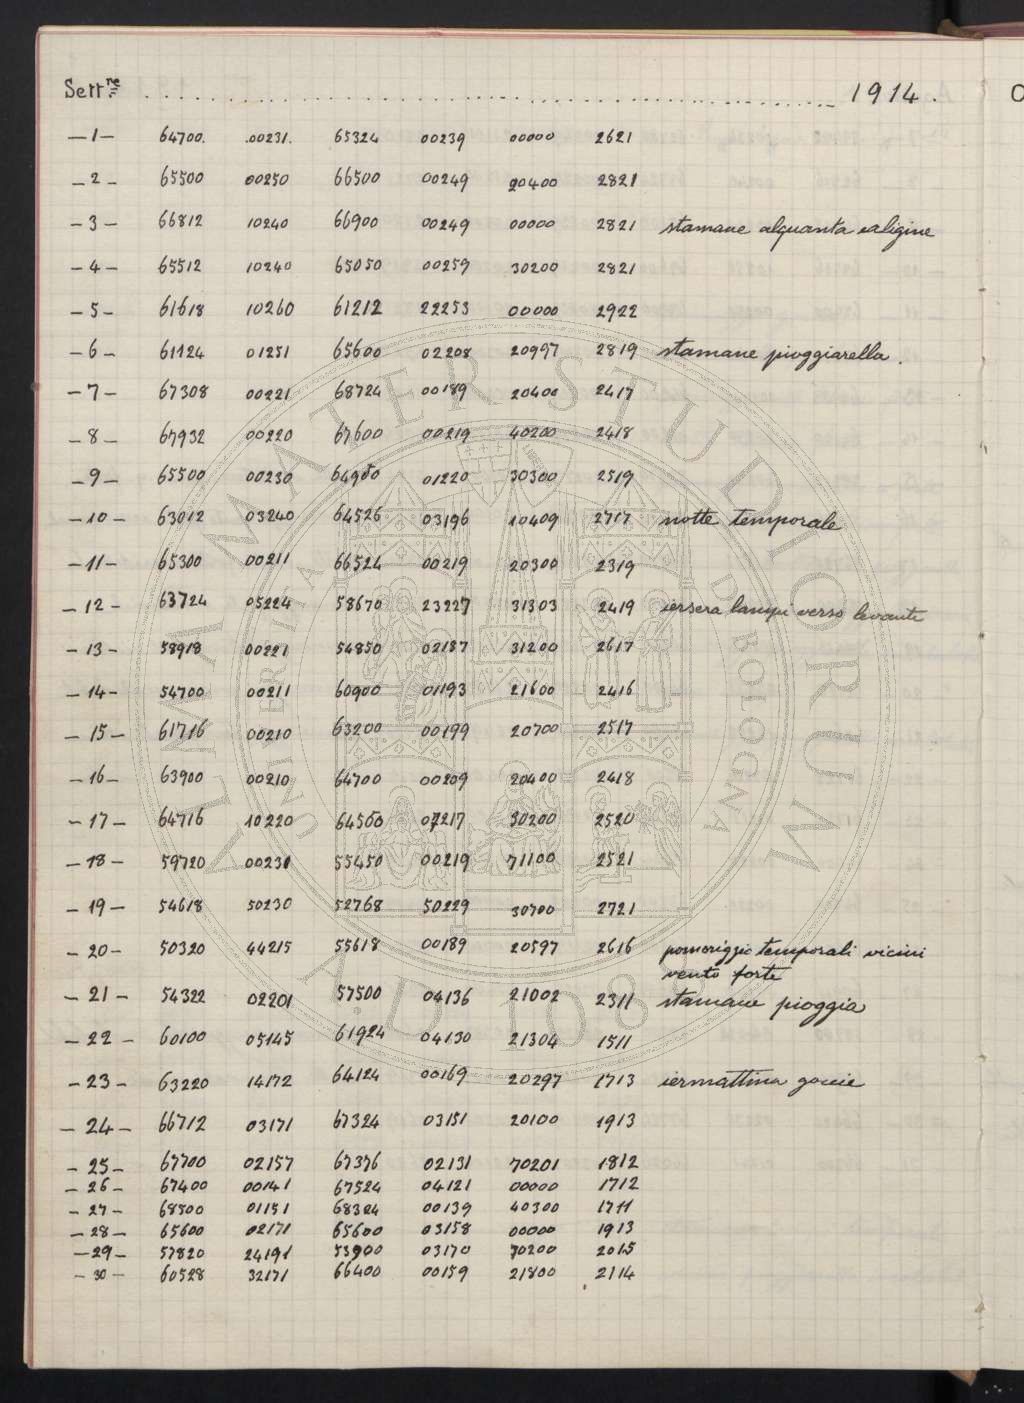 Settre 1914.
-1- 64700. .00231. 65324 00239 00000 2621
-2- 65500 00250 66500 00249 20400 2821
-3- 66812 10240 66900 00249 00000 2821 stamane alquanta caligine
-4- 65512 10240 65050 00259 30200 2821
-5- 61618 10260 61212 22253 00000 2922
-6- 61124 01251 65600 02208 20997 2819 stamane pioggiarella.
-7- 67308 00221 68724 00189 20400 2417
-8- 67932 00220 67600 00219 40200 2418
-9- 65500 00230 64900 01220 30300 2519
-10- 63012 03240 64526 03196 10409 2717 notte temporale
-11- 65300 00211 66524 00219 20300 2319
-12- 63724 05224 58670 23227 31303 2419 iersera lampi verso levante
-13- 58918 00221 54850 02187 31200 2617
-14- 54700 00211 60900 01193 21600 2416
-15- 61716 00210 63200 00199 20700 2517
-16- 63900 00210 64700 00209 20400 2418
-17- 64716 10220 64500 07217 30200 2520
-18- 59720 00231 55450 00219 71100 2521
-19- 54618 50230 52768 50229 30700 2721
-20- 50320 44215 55618 00189 20597 2616 pomeriggio temporali vicini
vento forte
-21- 54322 02201 57500 04136 21002 2311 stamane pioggia
-22- 60100 05145 61924 04130 21304 1511
-23- 63220 14172 64124 00169 20297 1713 iermattina goccie
-24- 66712 03171 67324 03151 20100 1913
-25- 67700 02157 67376 02131 70201 1812
-26- 67400 00141 67524 04121 00000 1712
-27- 68500 01151 68324 00139 40300 1711
-28- 65600 02171 65600 03158 00000 1913
-29- 57820 24191 53900 03170 70200 2015
-30- 60528 32171 66400 00159 21800 2114
ALMA MATER STUDIORUM
UNIVERSITÀ DI BOLOGNA
A.D. 1088